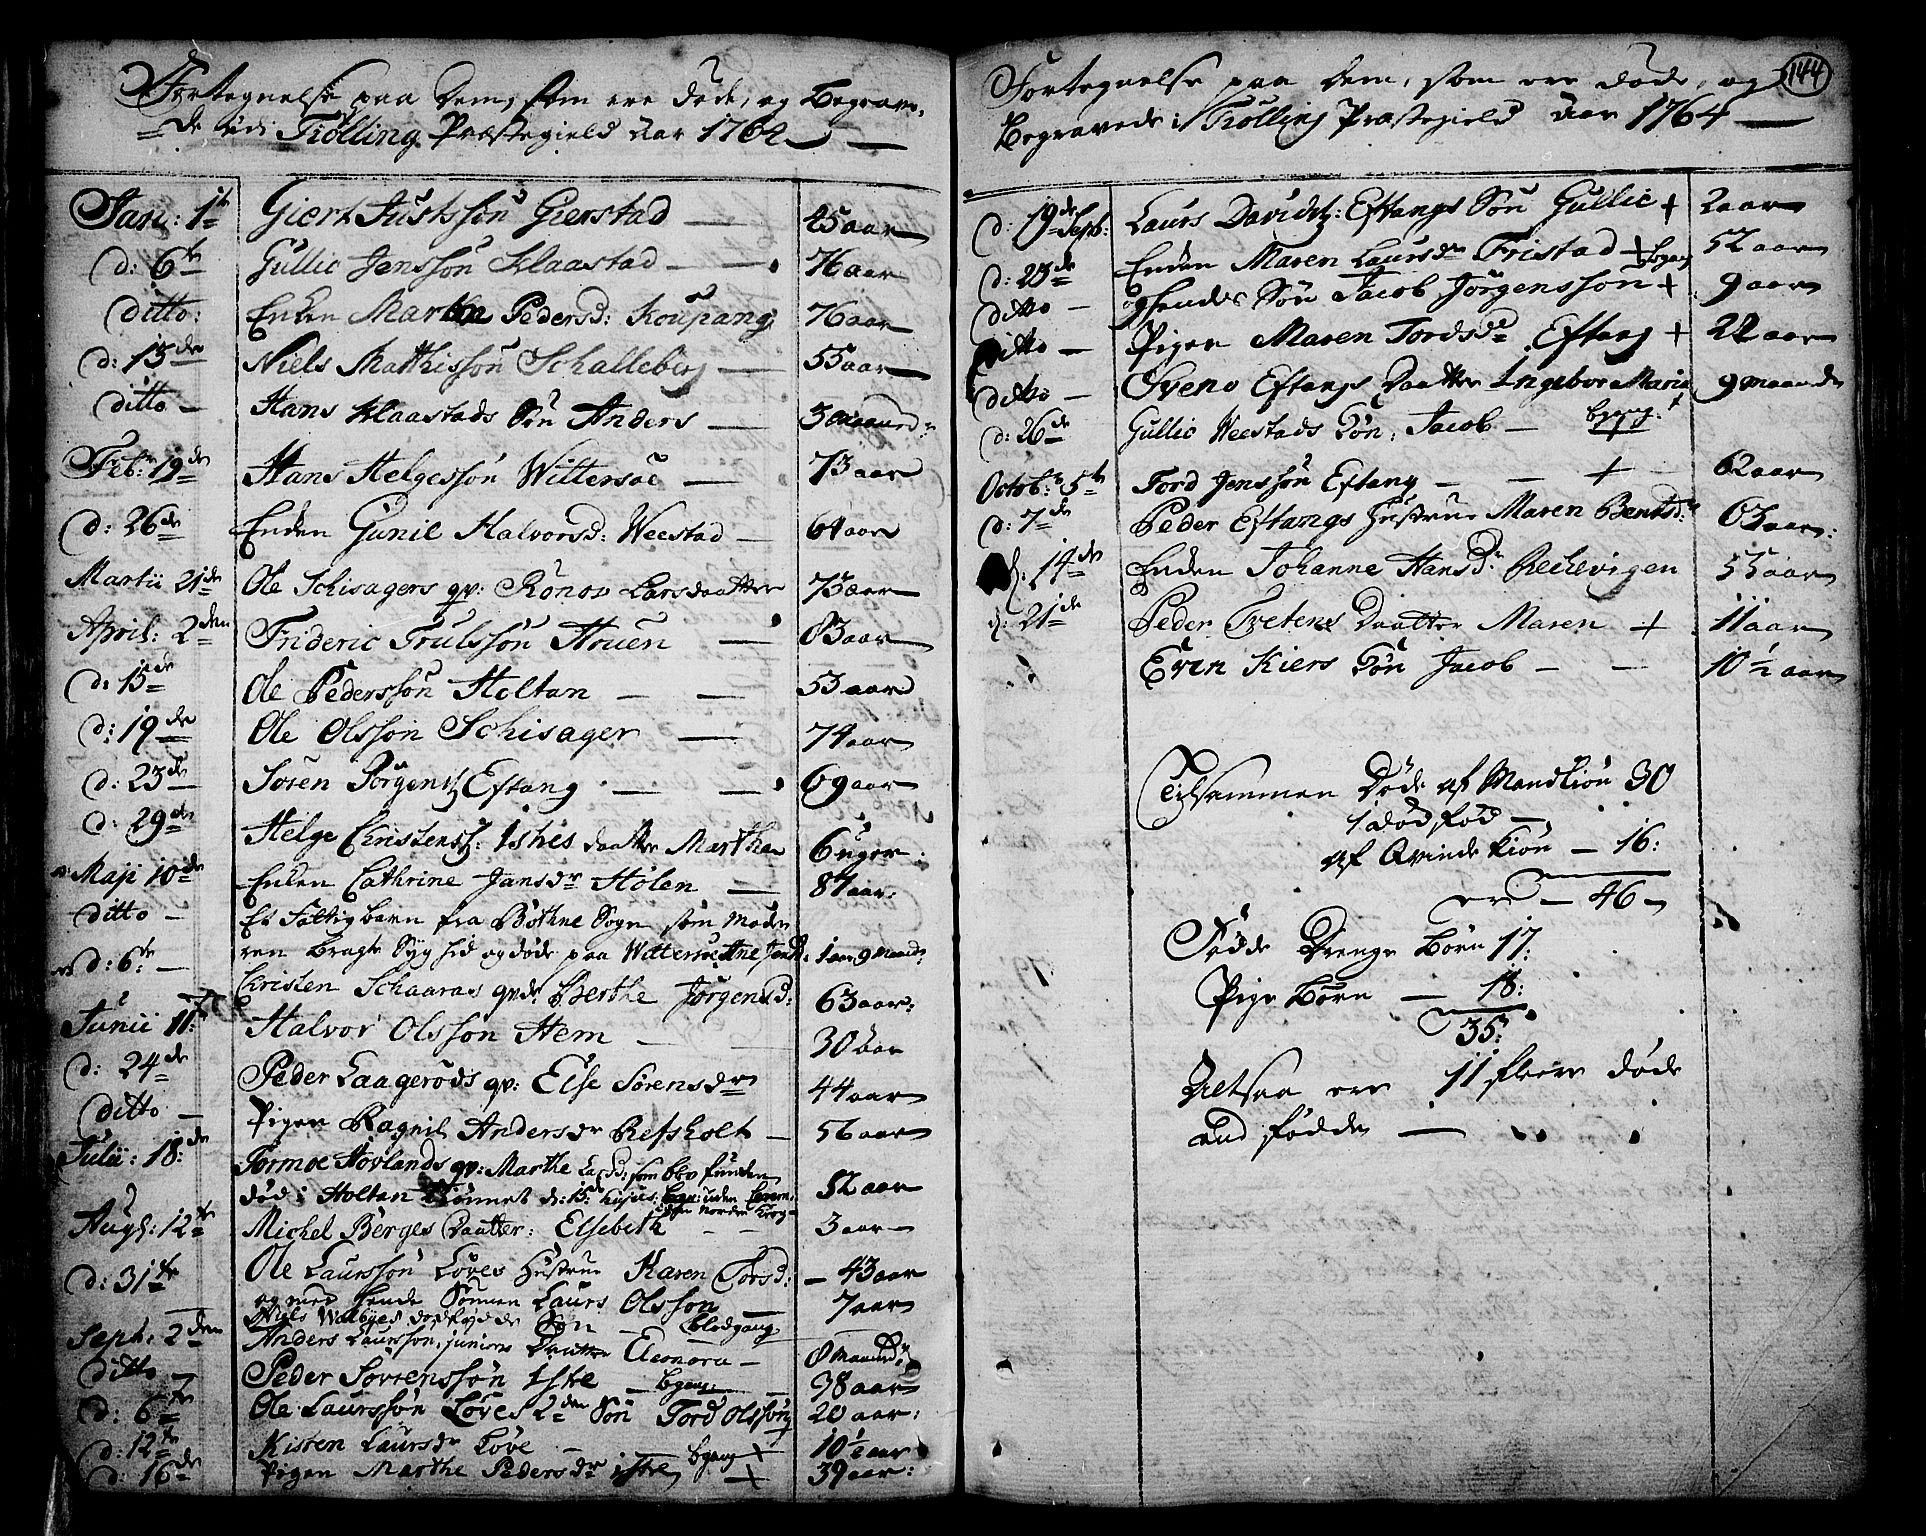 Fortegnelse paa Dem, som ere døde, og Begrave-
de udi Tiølling Præstegield Aar 1764
Jan: 1te Giert Justssøn Gierstad — 45 aar
d: 6te Gullic Jenssøn Klaastad — 76 aar
ditto: Enken Martha Pedersd: Koupang 76 aar
d: 13de Niels Mathissøn Schalleberg — 55 aar
ditto — Hans Klaastads Søn Anders — 3 Maaned
Feb: 19de Hans Helgessøn Wittersøe — 73 aar
d: 26de Enken Gunil Halvorsd: Weestad — 64 aar
Martii 21de Ole Schisagers qv: Rønov Larsdaatter 73 aar
April: 2den Frideric Trulssøn Houen — 83 aar
d: 15de Ole Pederssøn Holtan — 53 aar
d: 19de Ole Olssøn Schisager — 74 aar
d: 23de Søren Jørgens: Eftang — 69 aar
d: 29de Helge Christens: Ishis daatter Martha 6 uger
Maji 10de Enken Cathrine Jansdr Hølen — 87 aar
ditto — Et Fattig barn fra Sogn som Mode-
d: 6te — ren bragte Syg hid og døde paa Wittersøe Ane 1 aar 9 Maand:
Christen Schaaras qvd: Berthe Jørgensd: 63 aar
Junii 11te Halvor Olssøn Hem — 30 aar
d: 24de Peder Laagerøds qv: Else Sørensdr 44 aar
ditto — Pigen Ragnil Andersdr Refsholt — 56 aar
Julii: 18: Tormoe Hovlands qv: Marthe Larsd: som blev funden
død i Holtan Tiønnet d: 15de hujus: 52 aar
Aug: 12te Michel Berges Daatter: Elsebeth — 3 aar
d: 31te Ole Laurssøn Løves Hustrue Karen Torsd: — 43 aar
og med hende Sønnen Laurs Olssøn — 7 aar
Niels dødfødde Søn blodgang
Sept: 2den Anders Laurssøn, juniors Daatter Eleonora — 8 Maaned
ditto — Peder Sørenssøn Iste — bgang — 38 aar
d: 6te Ole Laurssøn Løves 2den Søn Tord Olssøn 20 aar:
d: 12te Kisten Laursdr Løve — bgang + 10½ aar
d: 16de Pigen Marthe Pedersdr iste + 39 aar:
144
Fortegnelse paa dem, som ere døde, og
Begravede i Tiølling Præstegield Aar 1764
d: 19de Septb: Laurs Davids: Eftangs Søn Gullic + 2 aar
d: 23de Enken Maren Laursdr Fristad + bgang 52 aar
ditto — og hendes Søn Jacob Jørgenssøn + 9 aar
ditto — Pigen Maren Tordsdr Eftang + 22 aar
ditto — Sveno Eftangs Daatter Ingebor Maria 9 Maaneder
d: 26de Gullic Weestads Søn: Jacob — bgang: +
Octob: 5te Tord Jenssøn Eftang — — + 62 aar
d: 7de Peder Eftangs Hustrue Maren Bentsd: 63 aar:
d: 14de Enken Johanne Hansdr Rechevigen 55 aar
d: 21de Peder Tvetens Daatter Maren + 11 aar
Even Kiers Søn Jacob — — 10½ aar
Tilsammen Døde af Mandkiøn 30
1 dødfød —
af Qvinde Kiøn — 16:
ere — 46 —
Fødde Drenge Børn 17:
Pige Børn — 18:
35:
Altsaa ere 11 fleere døde
end fødde —